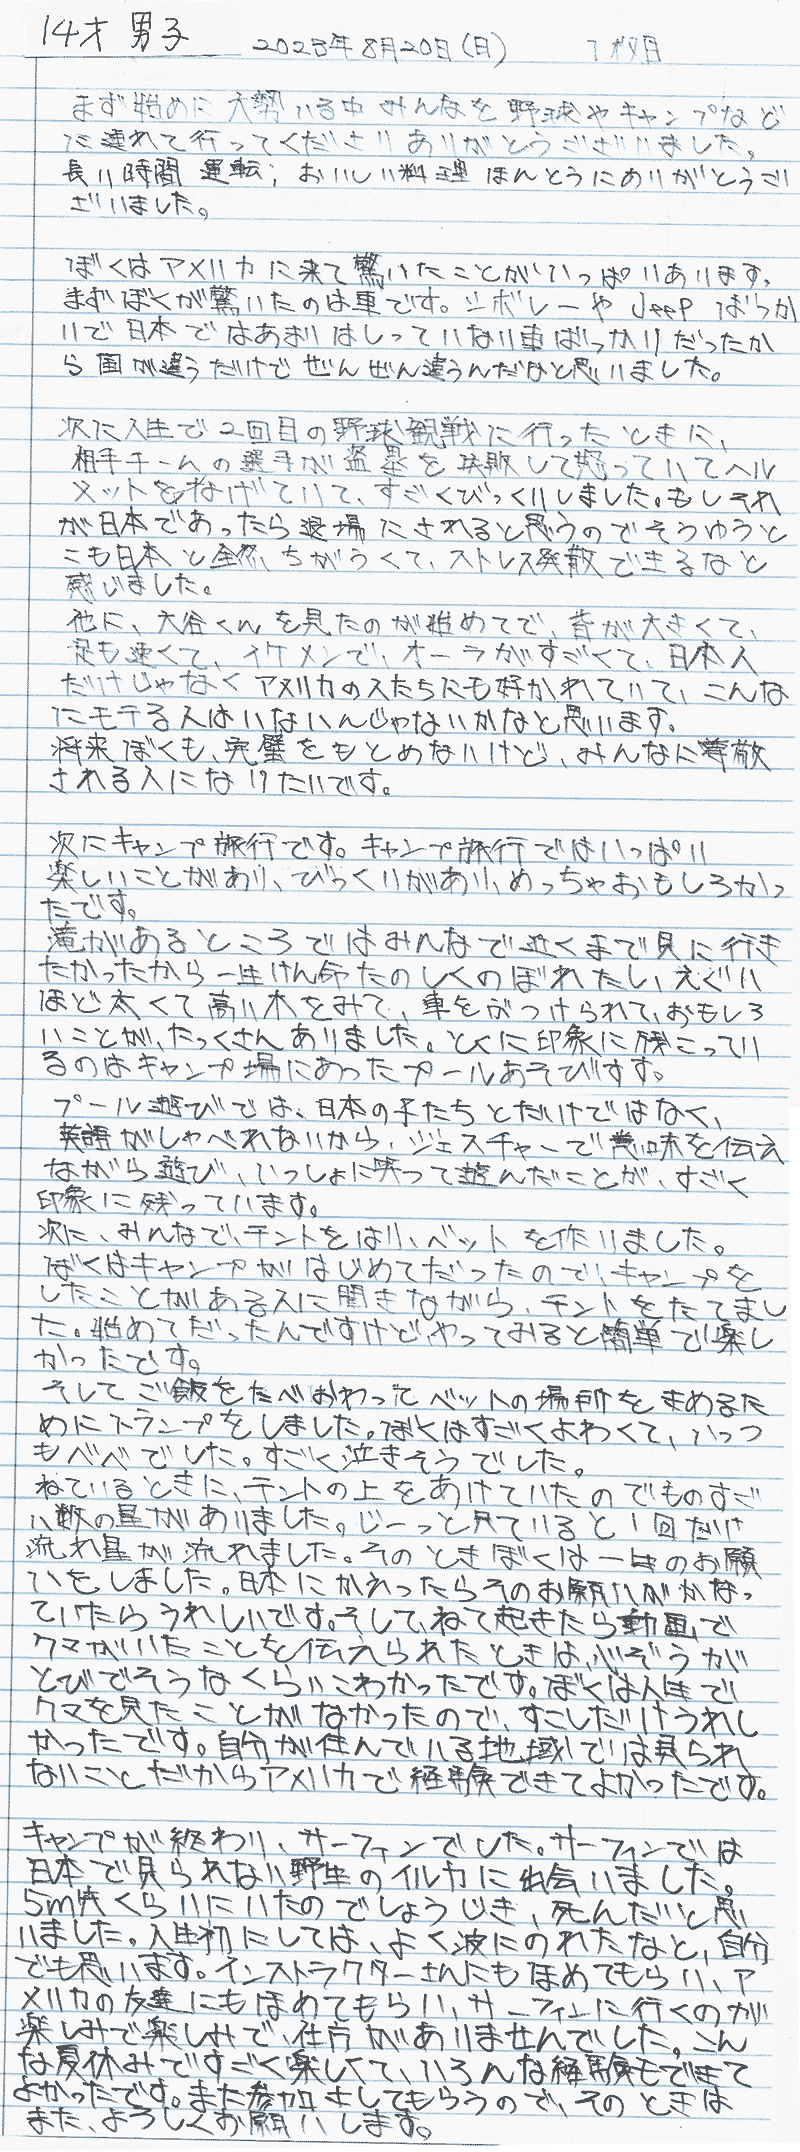 14才 男子
2023年8月20日(日) 1枚目
まず始めに大勢いる中みんなを野球やキャンプなど
に連れて行ってくださりありがとうございました。
長い時間運転、おいしい料理ほんとうにありがとうご
ざいました。
ぼくはアメリカに来て驚いたことがいっぱいあります。
まずぼくが驚いたのは車です。シボレーやJeepばっか
いで日本ではあまりはしっていない車ばっかりだったか
ら国が違うだけでぜんぜん違うんだなと思いました。
次に人生で2回目の野球観戦に行ったときに、
相手チームの選手が盗塁を失敗して怒っていてヘル
メットをなげていて、すごくびっくりしました。もしそれ
が日本であったら退場にされると思うのでそうゆうと
こも日本と全然ちがうくて、ストレス発散できるなと
感じました。
他に、大谷くんを見たのが始めてで、背が大きくて、
足も速くて、イケメンで、オーラがすごくて、日本人
だけじゃなくアメリカの人たちにも好かれていて、こんな
にモテる人はいないんじゃないかなと思います。
将来ぼくも、完璧をもとめないけど、みんなに尊敬
される人になりたいです。
次にキャンプ旅行です。キャンプ旅行ではいっぱい
楽しいことがあり、びっくりがあり、めっちゃおもしろかっ
たです。
滝があるところではみんなで近くまで見に行き
たかったから一生けん命たのしくのぼれたし、えぐい
ほど太くて高い木をみて、車をぶつけられて、おもしろ
いことが、たっくさんありました。とくに印象に残こってい
るのはキャンプ場にあったプールあそびすす。
プール遊びでは、日本の子たちとだけではなく、
英語がしゃべれないから、ジェスチャーで意味を伝え
ながら遊び、いっしょに笑って遊んだことが、すごく
印象に残っています。
次に、みんなで、テントをはり、ベットを作りました。
ぼくはキャンプがはじめてだったので、キャンプを
したことがある人に聞きながら、テントをたてまし
た。始めてだったんですけどやってみると簡単で楽し
かったです。
そしてご飯をたべおわってベットの場所をきめるた
めにトランプをしました。ぼくはすごくよわくて、いっつ
もべべでした。すごく泣きそうでした。
ねているときに、テントの上をあけていたのでものすご
い数の星がありました。じーっと見ていると1回だけ
流れ星が流れました。そのときぼくは一生のお願
いをしました。日本にかえったらそのお願いがかなっ
ていたらうれしいです。そして、ねて起きたら動画で
クマがいたことを伝えられたときは、心ぞうが
とびでそうなくらいこわかったです。ぼくは人生で
クマを見たことがなかったので、すこしだけうれし
かったです。自分が住んでいる地域では見られ
ないことだからアメリカで経験できてよかったです。
キャンプが終わり、サーフィンでした。サーフィンでは
日本で見られない野生のイルカに出会いました。
5m先くらいにいたのでしょうじき、死んだいと思
いました。人生初にしては、よく波にのれたなと、自分
でも思います。インストラクターさんにもほめてもらい、ア
メリカの友達にもほめてもらい、サーフィンに行くのが
楽しみで楽しみで、仕方がありませんでした。こん
な夏休みですごく楽しくて、いろんな経験もできて
よかったです。また参加さしてもらうので、そのときは
また、よろしくお願いします。